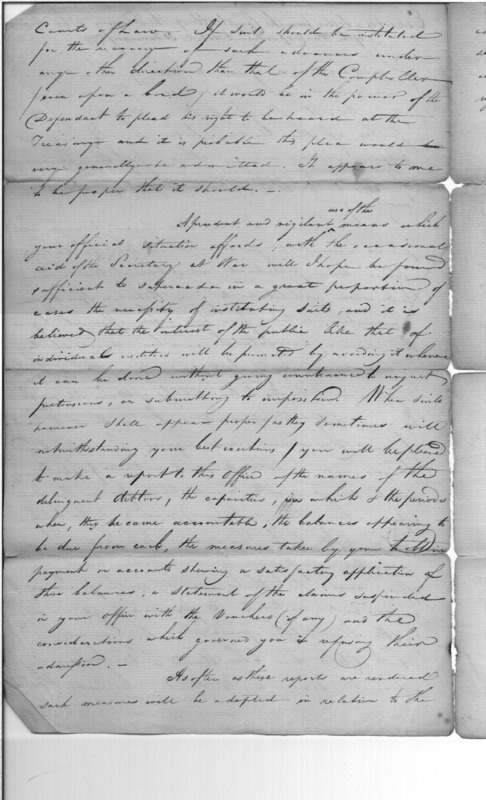 Courts of Law. If suits should be instituted
for the recovery of such advances under
any other direction than that of the Comptroller
(even upon a bond) it would be in the power of the
Defendant to plead his right to be heard at the
Treasury and it is probable this plea would
very generally be admitted. It appears to me
to be proper that it should. —
use of the
A prudent and vigilant ^ means which
your official situation affords, with the occasional
aid of the Secretary at War will I hope be found
sufficient to supersede in a great proportion of
cases the necessity of instituting suits, and it is
believed that the interest of the public like that of
individual creditors will be promoted by avoiding it whenever
it can be done without giving countenance to unjust
pretensions, or submitting to imposition. When suits
however shall appear proper (as they sometimes will
notwithstanding your best exertions) you will be pleased
to make a report to this Office of the names of the
delinquent debtors, the capacities, in which & the periods
when, they became accountable, the balances appearing to
be due from each, the measures taken by you to obtain
payment or accounts shewing a satisfactory application of
those balances, a statement of the claims suspended
in your office with the Vouchers (if any) and the
considerations which governed you in refusing their
admission. —
As often as these reports are rendered
such measures will be adopted in relation to the